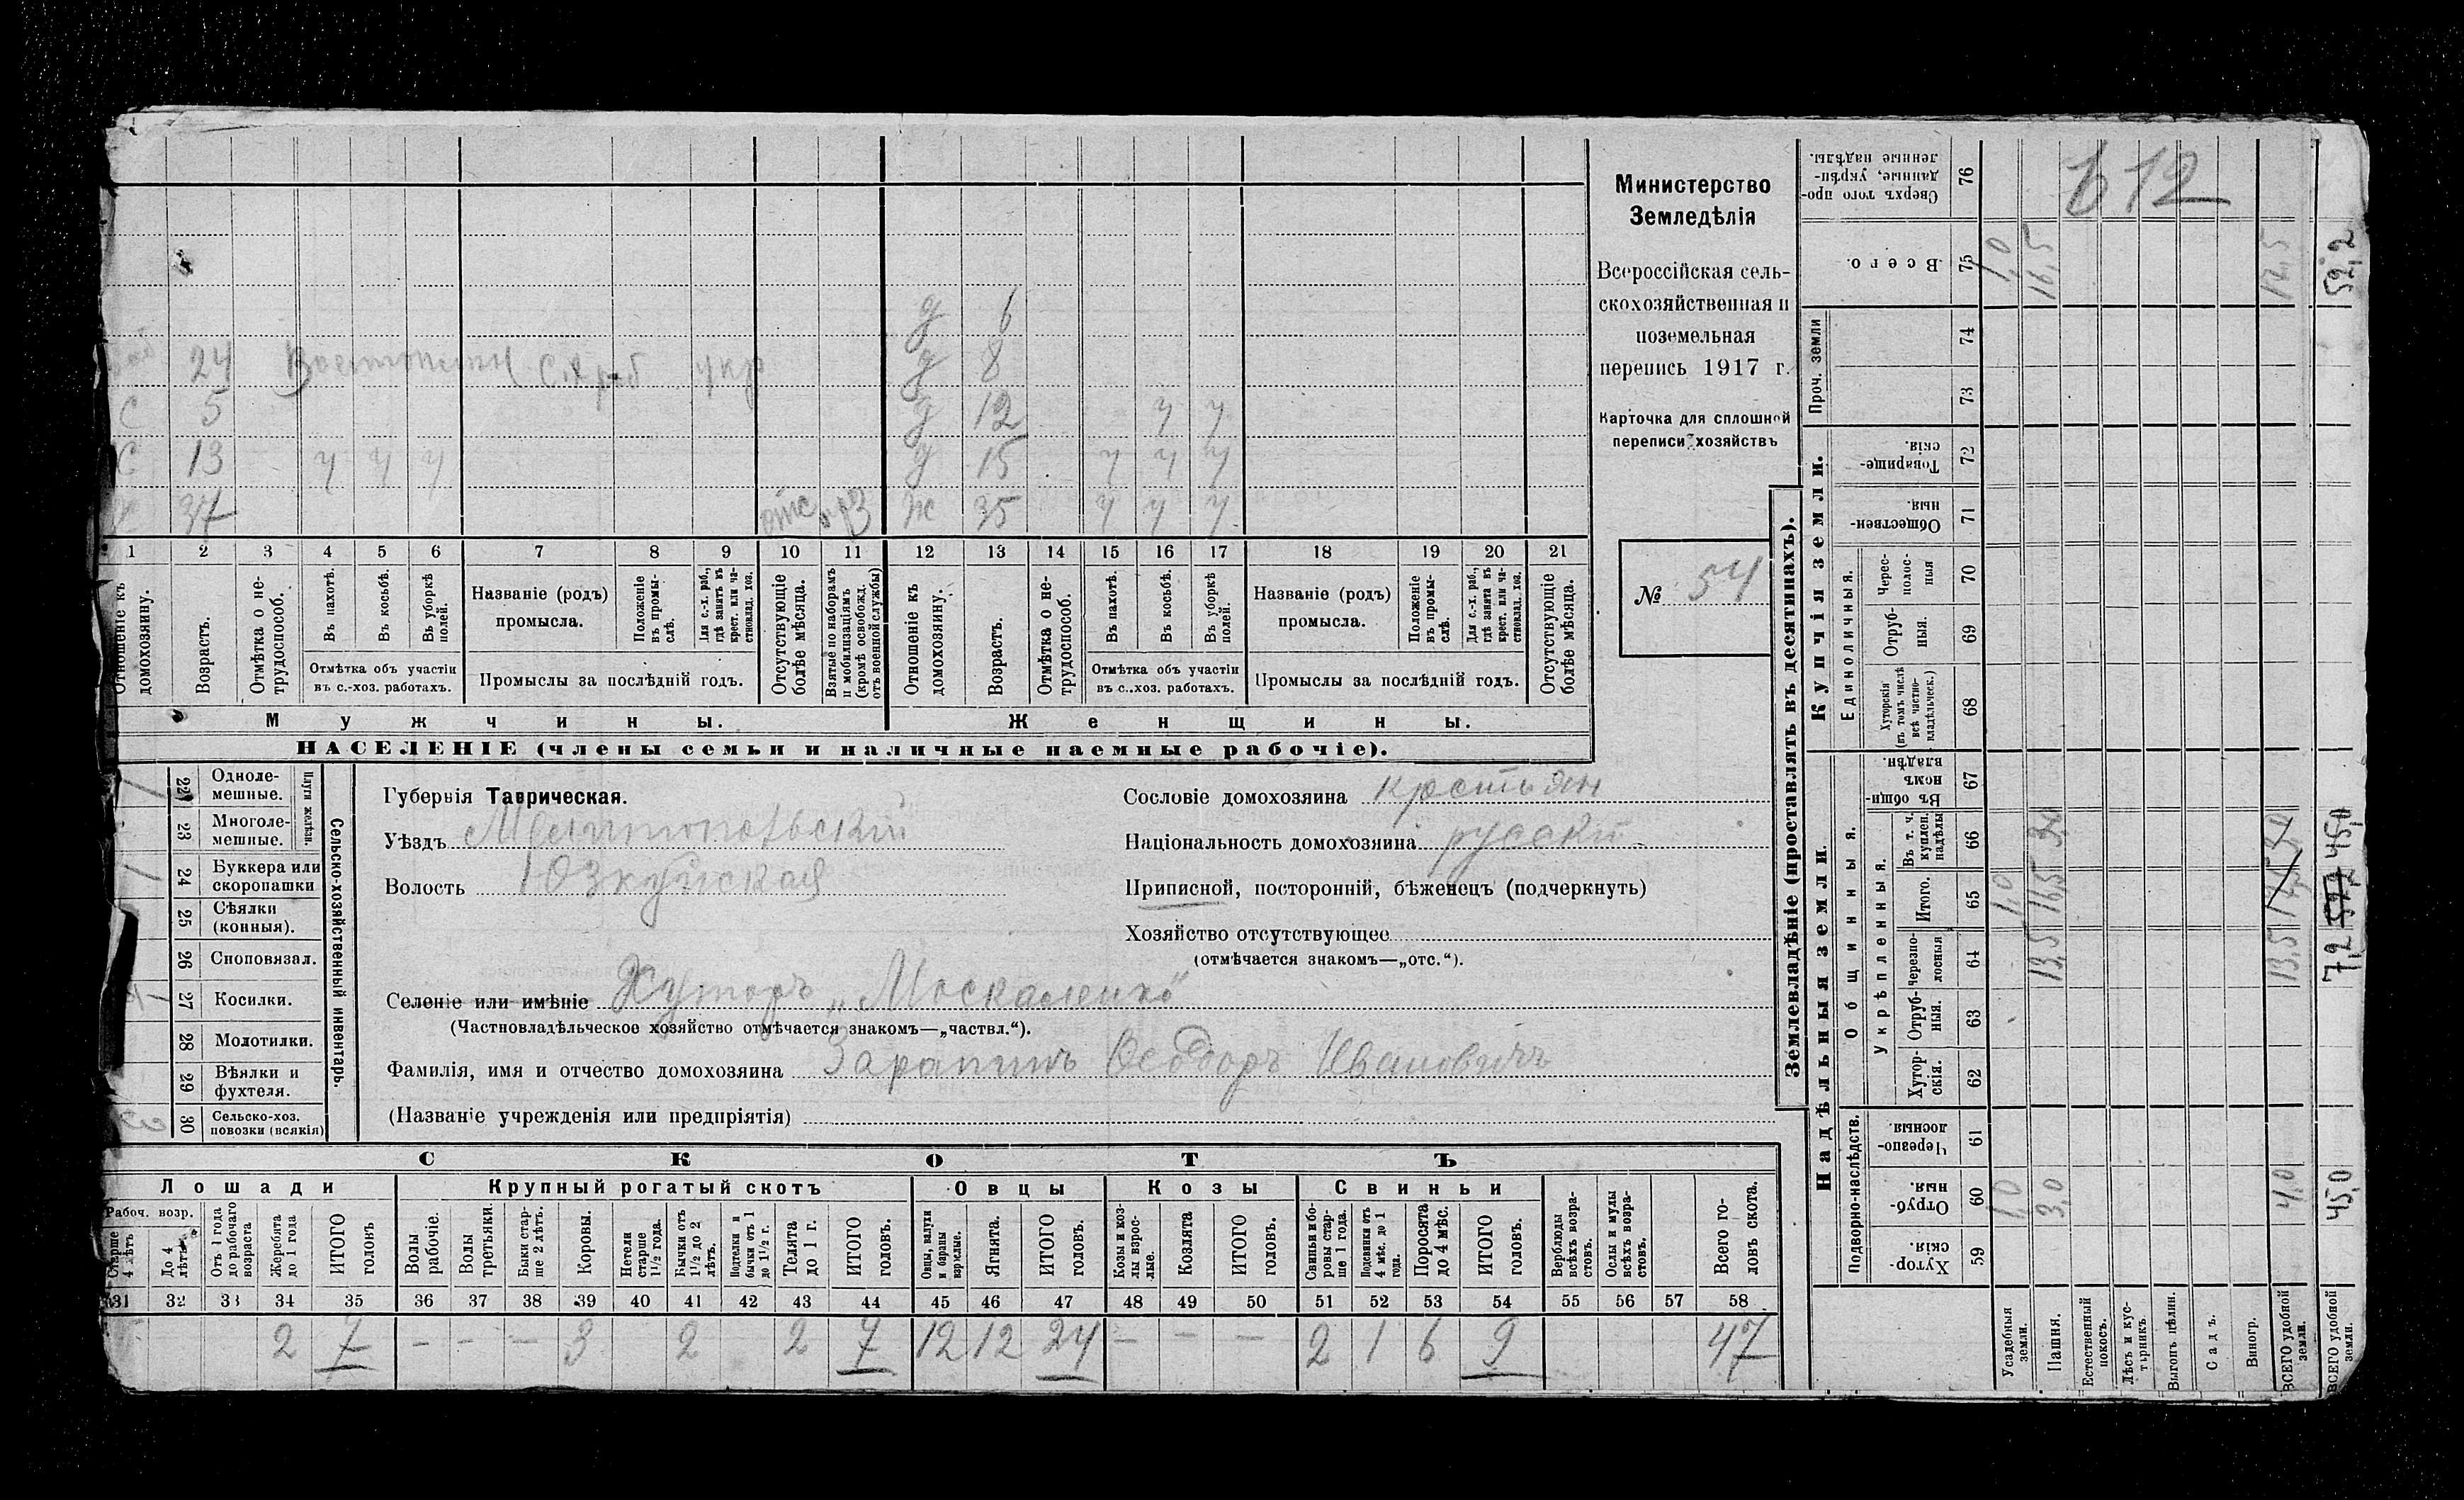 Министерство
Земледѣлія
Всероссійская сель-
скохозяйственная и
поземельная
перепись 1917 г.
Карточка для сплошной
переписи хозяйствъ
№ 54
д 6
24 укр
д 8
с 5
д 12 у у
с 13 у у у
д 15 у у у
37 отс
ж 35 у у у
1 2 3 4 5 6 7 8 9 10 11 12 13 14 15 16 17 18 19 20 21
Отношеніе къ домохозяину.
Возрастъ.
Отмѣтка о не-трудоспособ.
Въ пахотѣ.
Въ косьбѣ.
Въ уборкѣ полей.
Отмѣтка объ участіи
въ с.-хоз. работахъ.
Названіе (родъ)
промысла.
Положеніе въ промы-слѣ.
Для с.-х. раб., гдѣ занятъ въ крест. или ча-стновлад. хоз.
Промыслы за послѣдній годъ.
Отсутствующіе болѣе мѣсяца.
Взятые по наборамъ и мобилизаціямъ (кромѣ освобожд. отъ военной службы)
Отношеніе къ домохозяину.
Возрастъ.
Отмѣтка о не-трудоспособ.
Въ пахотѣ.
Въ косьбѣ.
Въ уборкѣ полей.
Отмѣтка объ участіи
въ с..хоз. работахъ.
Названіе (родъ)
промысла.
Положеніе въ промы-слѣ.
Для с.-х. раб., гдѣ занята въ крест. или ча-стновлад. хоз.
Промыслы за послѣдній годъ.
Отсутствующіе болѣе мѣсяца.
Мужчины.
Женщины.
НАСЕЛЕНІЕ (члены семьи и наличные наемные рабочіе).
Сельско-хозяйственный инвентарь.
Плуги желѣзн.
22 Одноле-мешные.
23 Многоле-мешные.
24 Буккера или скоропашки
25 Сѣялки (конныя).
26 Сноповязал.
27 Косилки.
28 Молотилки.
29 Вѣялки и фухтеля.
30 Сельско-хоз. повозки (всякія) 3
Губернія Таврическая.
Уѣздъ Мелитопольскій
Волость Юзкуйская
Селеніе или имѣніе Хуторъ „Москаленко"
(Частновладѣльческое хозяйство отмѣчается знакомъ—„частвл.“).
Фамилія, имя и отчество домохозяина Зарапинъ Феодоръ Ивановичъ
(Названіе учрежденія или предпріятія)
Сословіе домохозяина крестьян
Національность домохозяина русскій
Приписной, посторонній, бѣженецъ (подчеркнуть)
Хозяйство отсутствующее
(отмѣчается знакомъ—„отс.“).
СКОТЪ
Лошади
Крупный рогатый скотъ
Овцы
Козы
Свиньи
Рабоч. возр.
Старше 4 лѣтъ
До 4 лѣтъ
Отъ 1 года до рабочаго возраста
Жеребята до 1 года
ИТОГО головъ
Волы рабочіе.
Волы третьяки.
Быки стар-ше 2 лѣтъ.
Коровы.
Нетели старше 1½ года.
Бычки отъ 1½ до 2 лѣтъ.
Подтелки и бычки отъ 1 до 1½ г.
Телята до 1 г.
ИТОГО головъ.
Овцы, валухи и бараны взрослые.
Ягнята.
ИТОГО головъ.
Козы и коз-лы взрос-лые.
Козлята
ИТОГО головъ.
Свиньи и бо-ровы стар-ше 1 года.
Подсвинки отъ 4 мѣс. до 1 года.
Поросята до 4 мѣс.
ИТОГО головъ.
Верблюды всѣхъ возра-стовъ.
Ослы и мулы всѣхъ возра-стовъ.
Всего го-ловъ скота.
31 32 33 34 35 36 37 38 39 40 41 42 43 44 45 46 47 48 49 50 51 52 53 54 55 56 57 58
2 7 - - - 3 2 2 7 12 12 24 - - - 2 1 6 9 47
Землевладѣніе (проставлять въ десятинахъ).
Надѣльныя земли.
Купчія земли.
Проч. земли
Подворно-наслѣдств.
Общинныя.
Укрѣпленныя.
Единоличныя.
59 Хутор-скія.
60 Отруб-ныя.
61 Черезпо-лосныя.
62 Хутор-скія.
63 Отруб-ныя.
64 Черезпо-лосныя
65 Итого.
66 Въ т. ч. куплен. надѣлы
67 Въ общи-номъ владѣн.
68 Хуторскія (въ томъ числѣ всѣ частно-владѣльческ.)
69 Отруб-ныя.
70 Черес-полос-ныя
71 Обществен-ныя.
72 Товарище-скія.
73
74
75 Всего.
76 Сверхъ того про-данные, укрѣп-ленные надѣлы.
Усадебныя земли. 1,0 1,0 1,0
Пашня. 3,0 13,5 16,5 16,5
Естественный покосъ.
Лѣсъ и кус-тарникъ.
Выгонъ цѣлин.
Садъ.
Виногр.
ВСЕГО удобной земли. 4,0 13,5
ВСЕГО удобной земли. 45,0 7,2 45,0 52,2
612